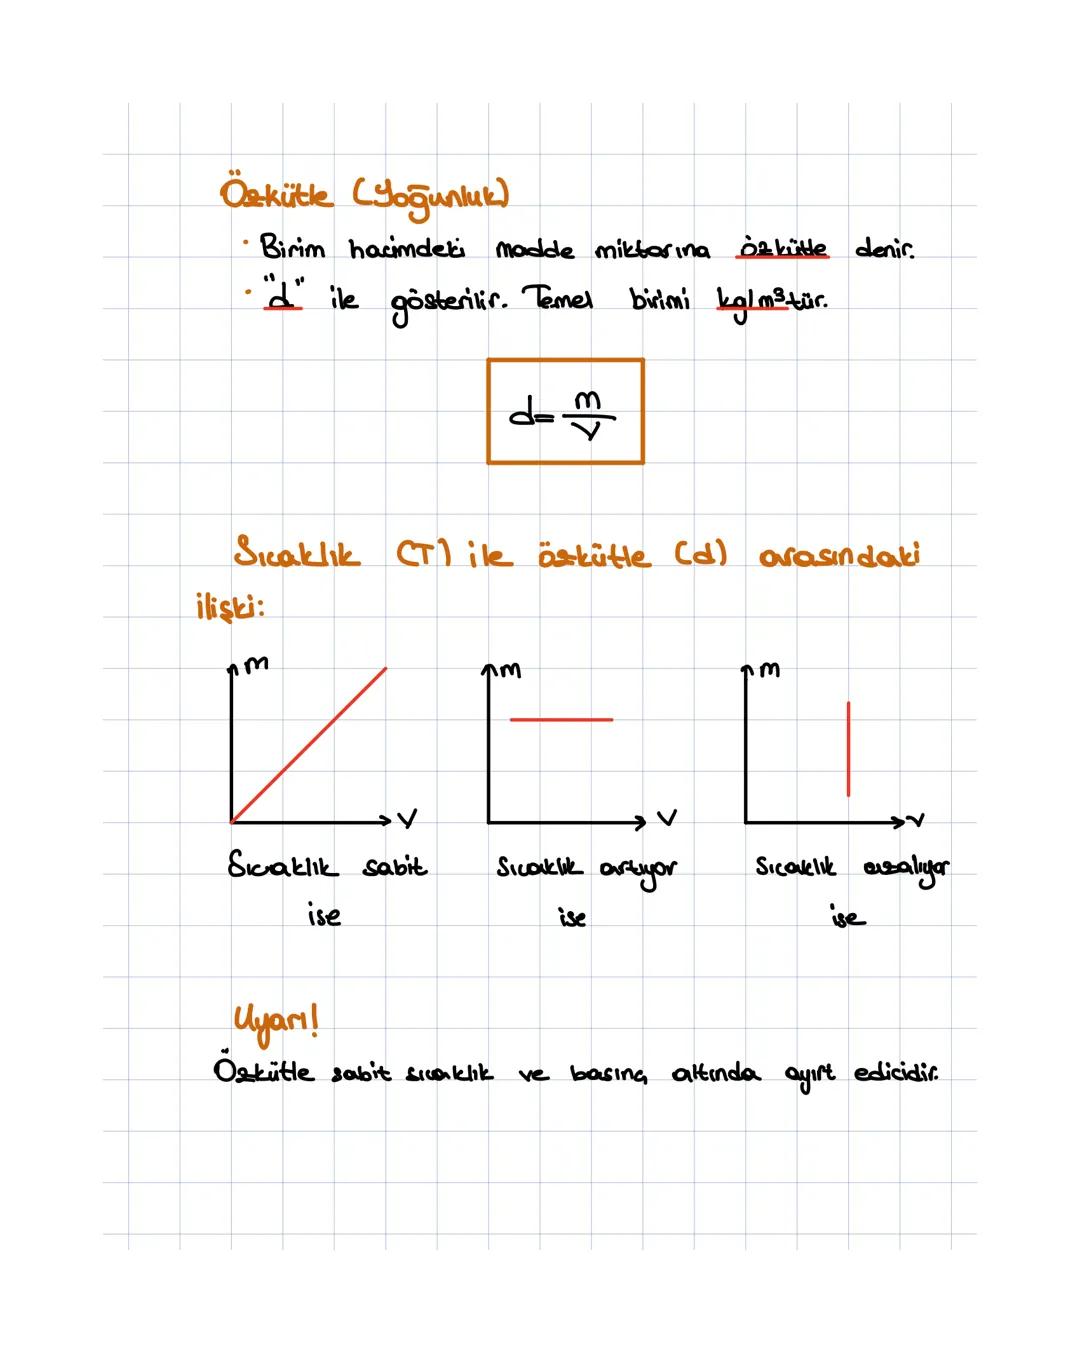 Özkütle (Yoğunluk)
· Birim hacimdeki madde miktarına özkütle denir.
· "d" ile gösterilir. Temel birimi kg/m³tür.
d= m/V
Sıcaklık (T) ile özkütle (d) arasındaki
ilişki:
m m m
V V V
Sıcaklık sabit Sıcaklık artıyor Sıcaklık azalıyor
ise ise ise
Uyarı!
Özkütle sabit sıcaklık ve basınç altında ayırt edicidir.